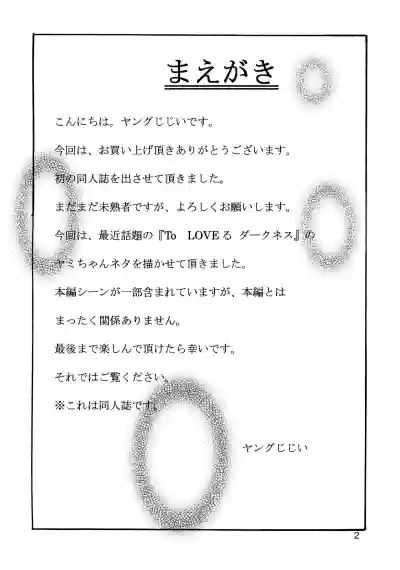 まえがき
こんにちは。ヤングじじいです。
今回は、お買い上げ頂きありがとうございます。
初の同人誌を出させて頂きました。
まだまだ未熟者ですが、よろしくお願いします。
今回は、最近話題の『To LOVEる ダークネス』の
ヤミちゃんネタを描かせて頂きました。
本編シーンが一部含まれていますが、本編とは
まったく関係ありません。
最後まで楽しんで頂けたら幸いです。
それではご覧ください。
※これは同人誌です。
ヤングじじい
2